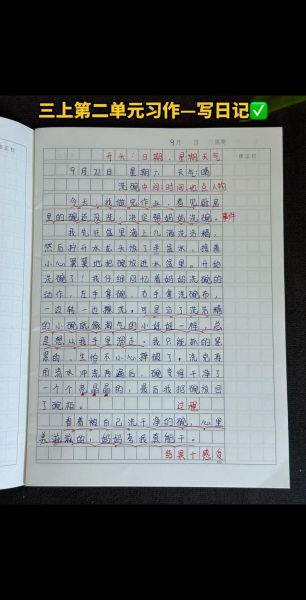 三上第二单元习作—写日记✅
9月 日
开头：日期，星期天气
9月21日 星期六 天气：晴
洗碗 中间：时间地点人物
今天，我做完作业，看见厨房
里的碗还没洗，决定帮妈妈洗碗。事件
我先在盆里滴上几滴洗洁精，
然后拧开水龙头放了半盆水，接着
小心翼翼地把碗放进水盆里。开始
洗碗了！我仔细回忆着妈妈洗碗的
动作，左手拿碗，右手拿洗碗布，
一边转一边擦洗。可是沾了洗洁精
的小碗就像淘气的小娃娃一样，总
是想从我手里溜走。我只能抓的紧
紧的，生怕不小心摔破了。洗完再
用清水冲洗两遍后，碗变得干净了
一个个亮晶晶的，最后我把碗放回
了碗柜。 过程
看着被自己洗干净的碗，心里
美滋滋的，妈妈夸我真能干。
结果+感受